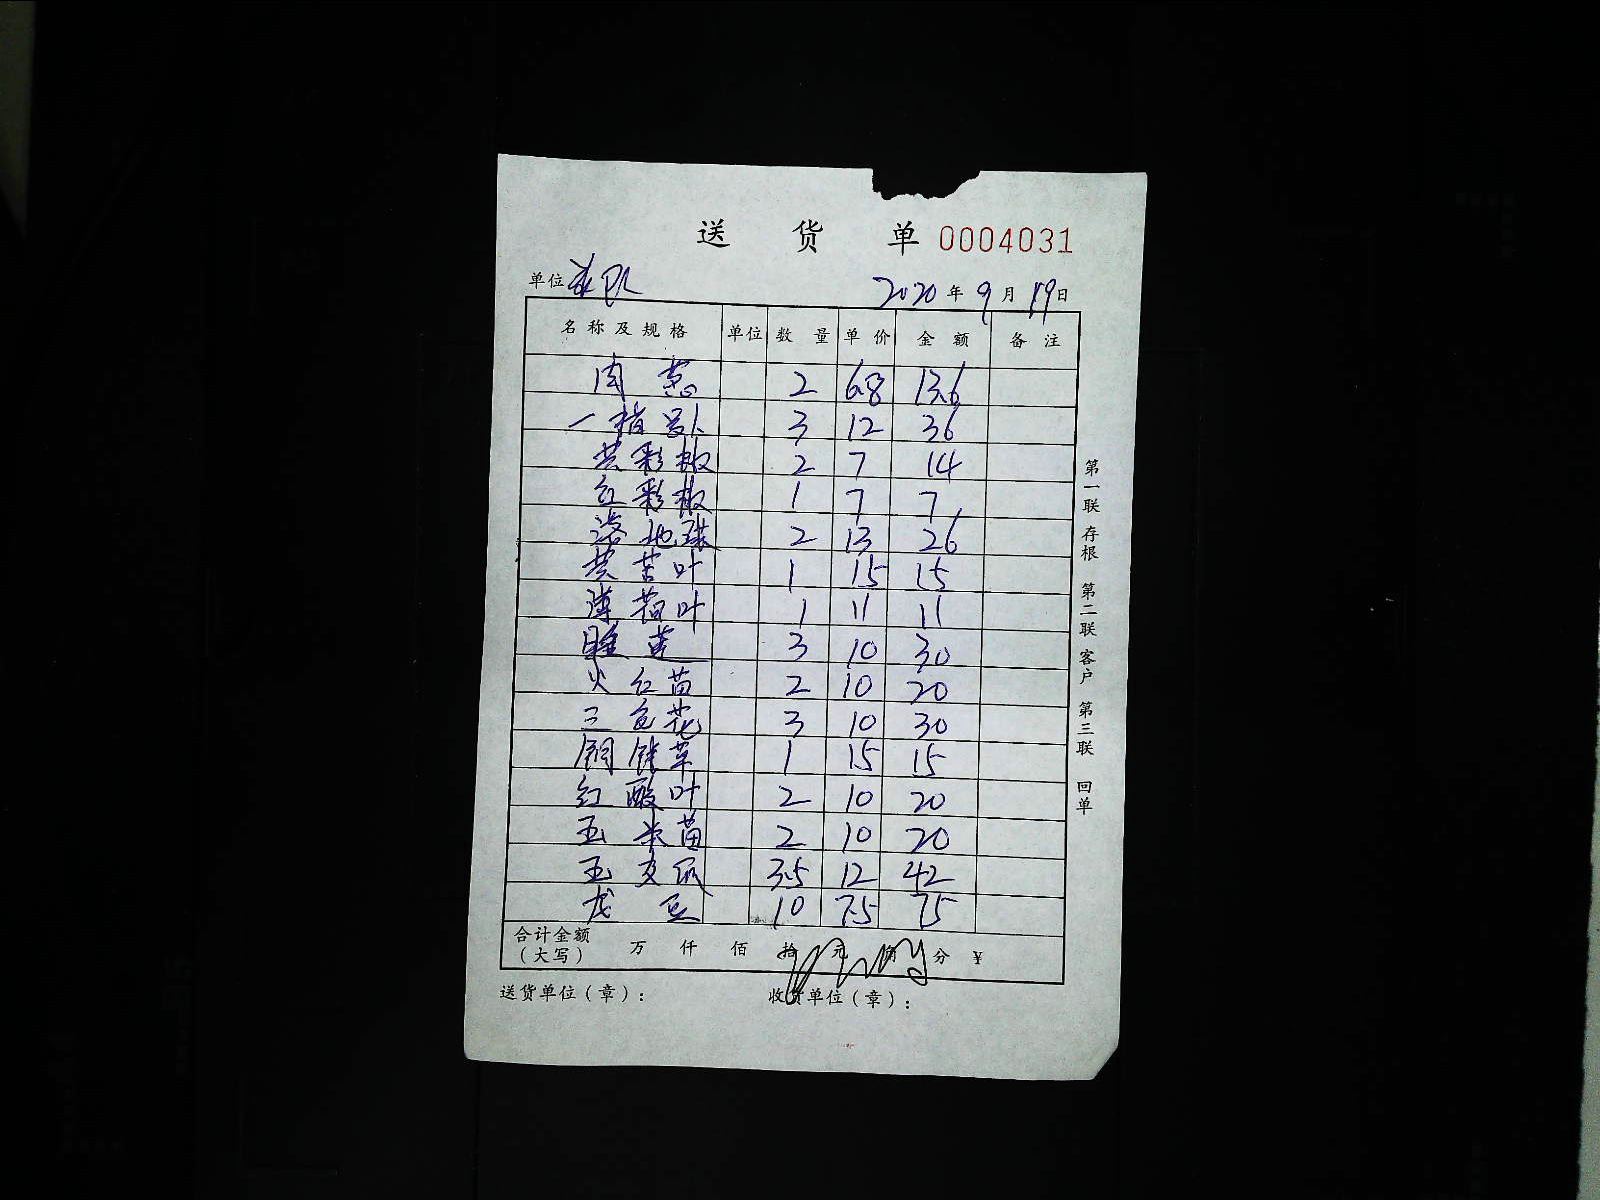 送 货 单 0004031
单位 2020 年 9 月 19 日
名称及规格 单位 数量 单价 金额 备注
肉葱 2 6.8 13.6
一指 3 12 36
黄彩椒 2 7 14
红彩椒 1 7 7
地球 2 13 26
苦叶 1 15 15
薄荷叶 1 11 11
睡莲 3 10 30
火红苗 2 10 20
三色花 3 10 30
铜钱草 1 15 15
红酸叶 2 10 20
玉米苗 2 10 20
玉 瓜 3.5 12 42
龙豆 10 7.5 75
合计金额
（大写） 万 仟 佰 拾 元 角 分 ¥
送货单位（章）： 收货单位（章）：
第一联 存根 第二联 客户 第三联 回单